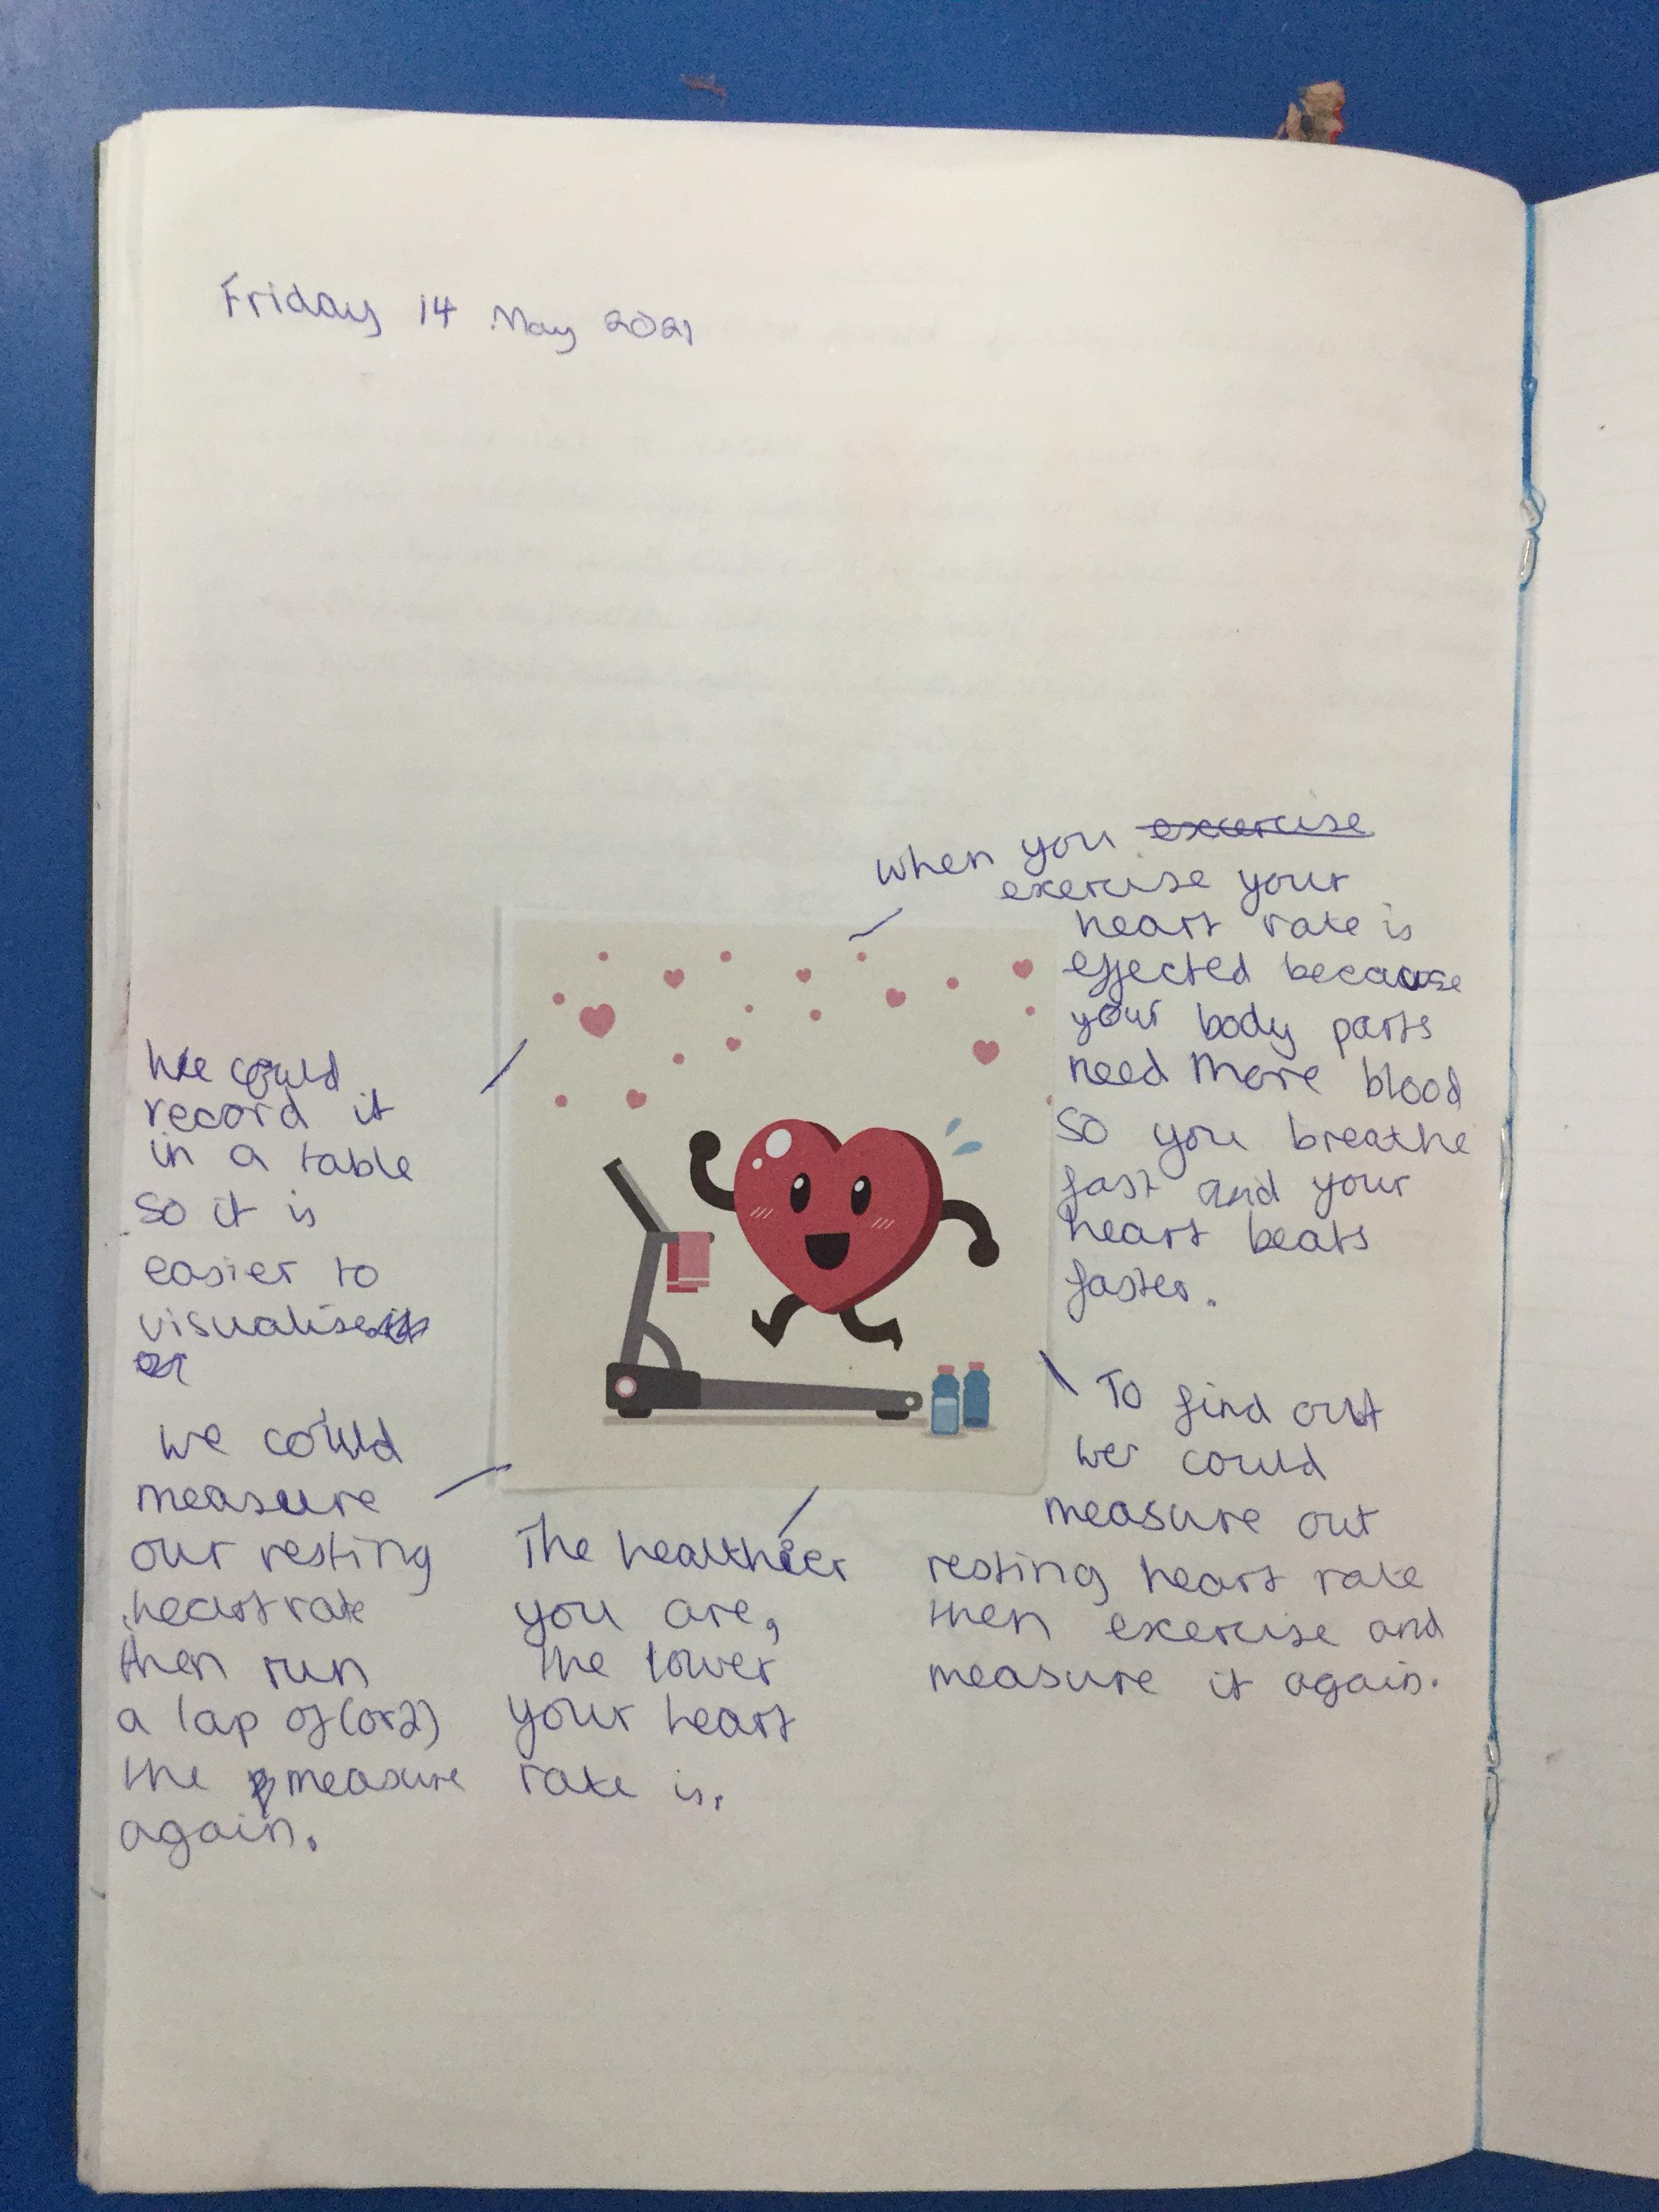 Friday 14 May 2021
when you exercise
exercise your
heart rate is
effected because
your body parts
need more blood
so you breathe
fast and your
heart beats
faster.
We could
record it
in a table
so it is
easier to
visualise
or
we could
measure
our resting
heart rate
then run
a lap of (or 2)
the measure
again.
The healthier
you are,
the lower
your heart
rate is.
To find out
we could
measure out
resting heart rate
then exercise and
measure it again.